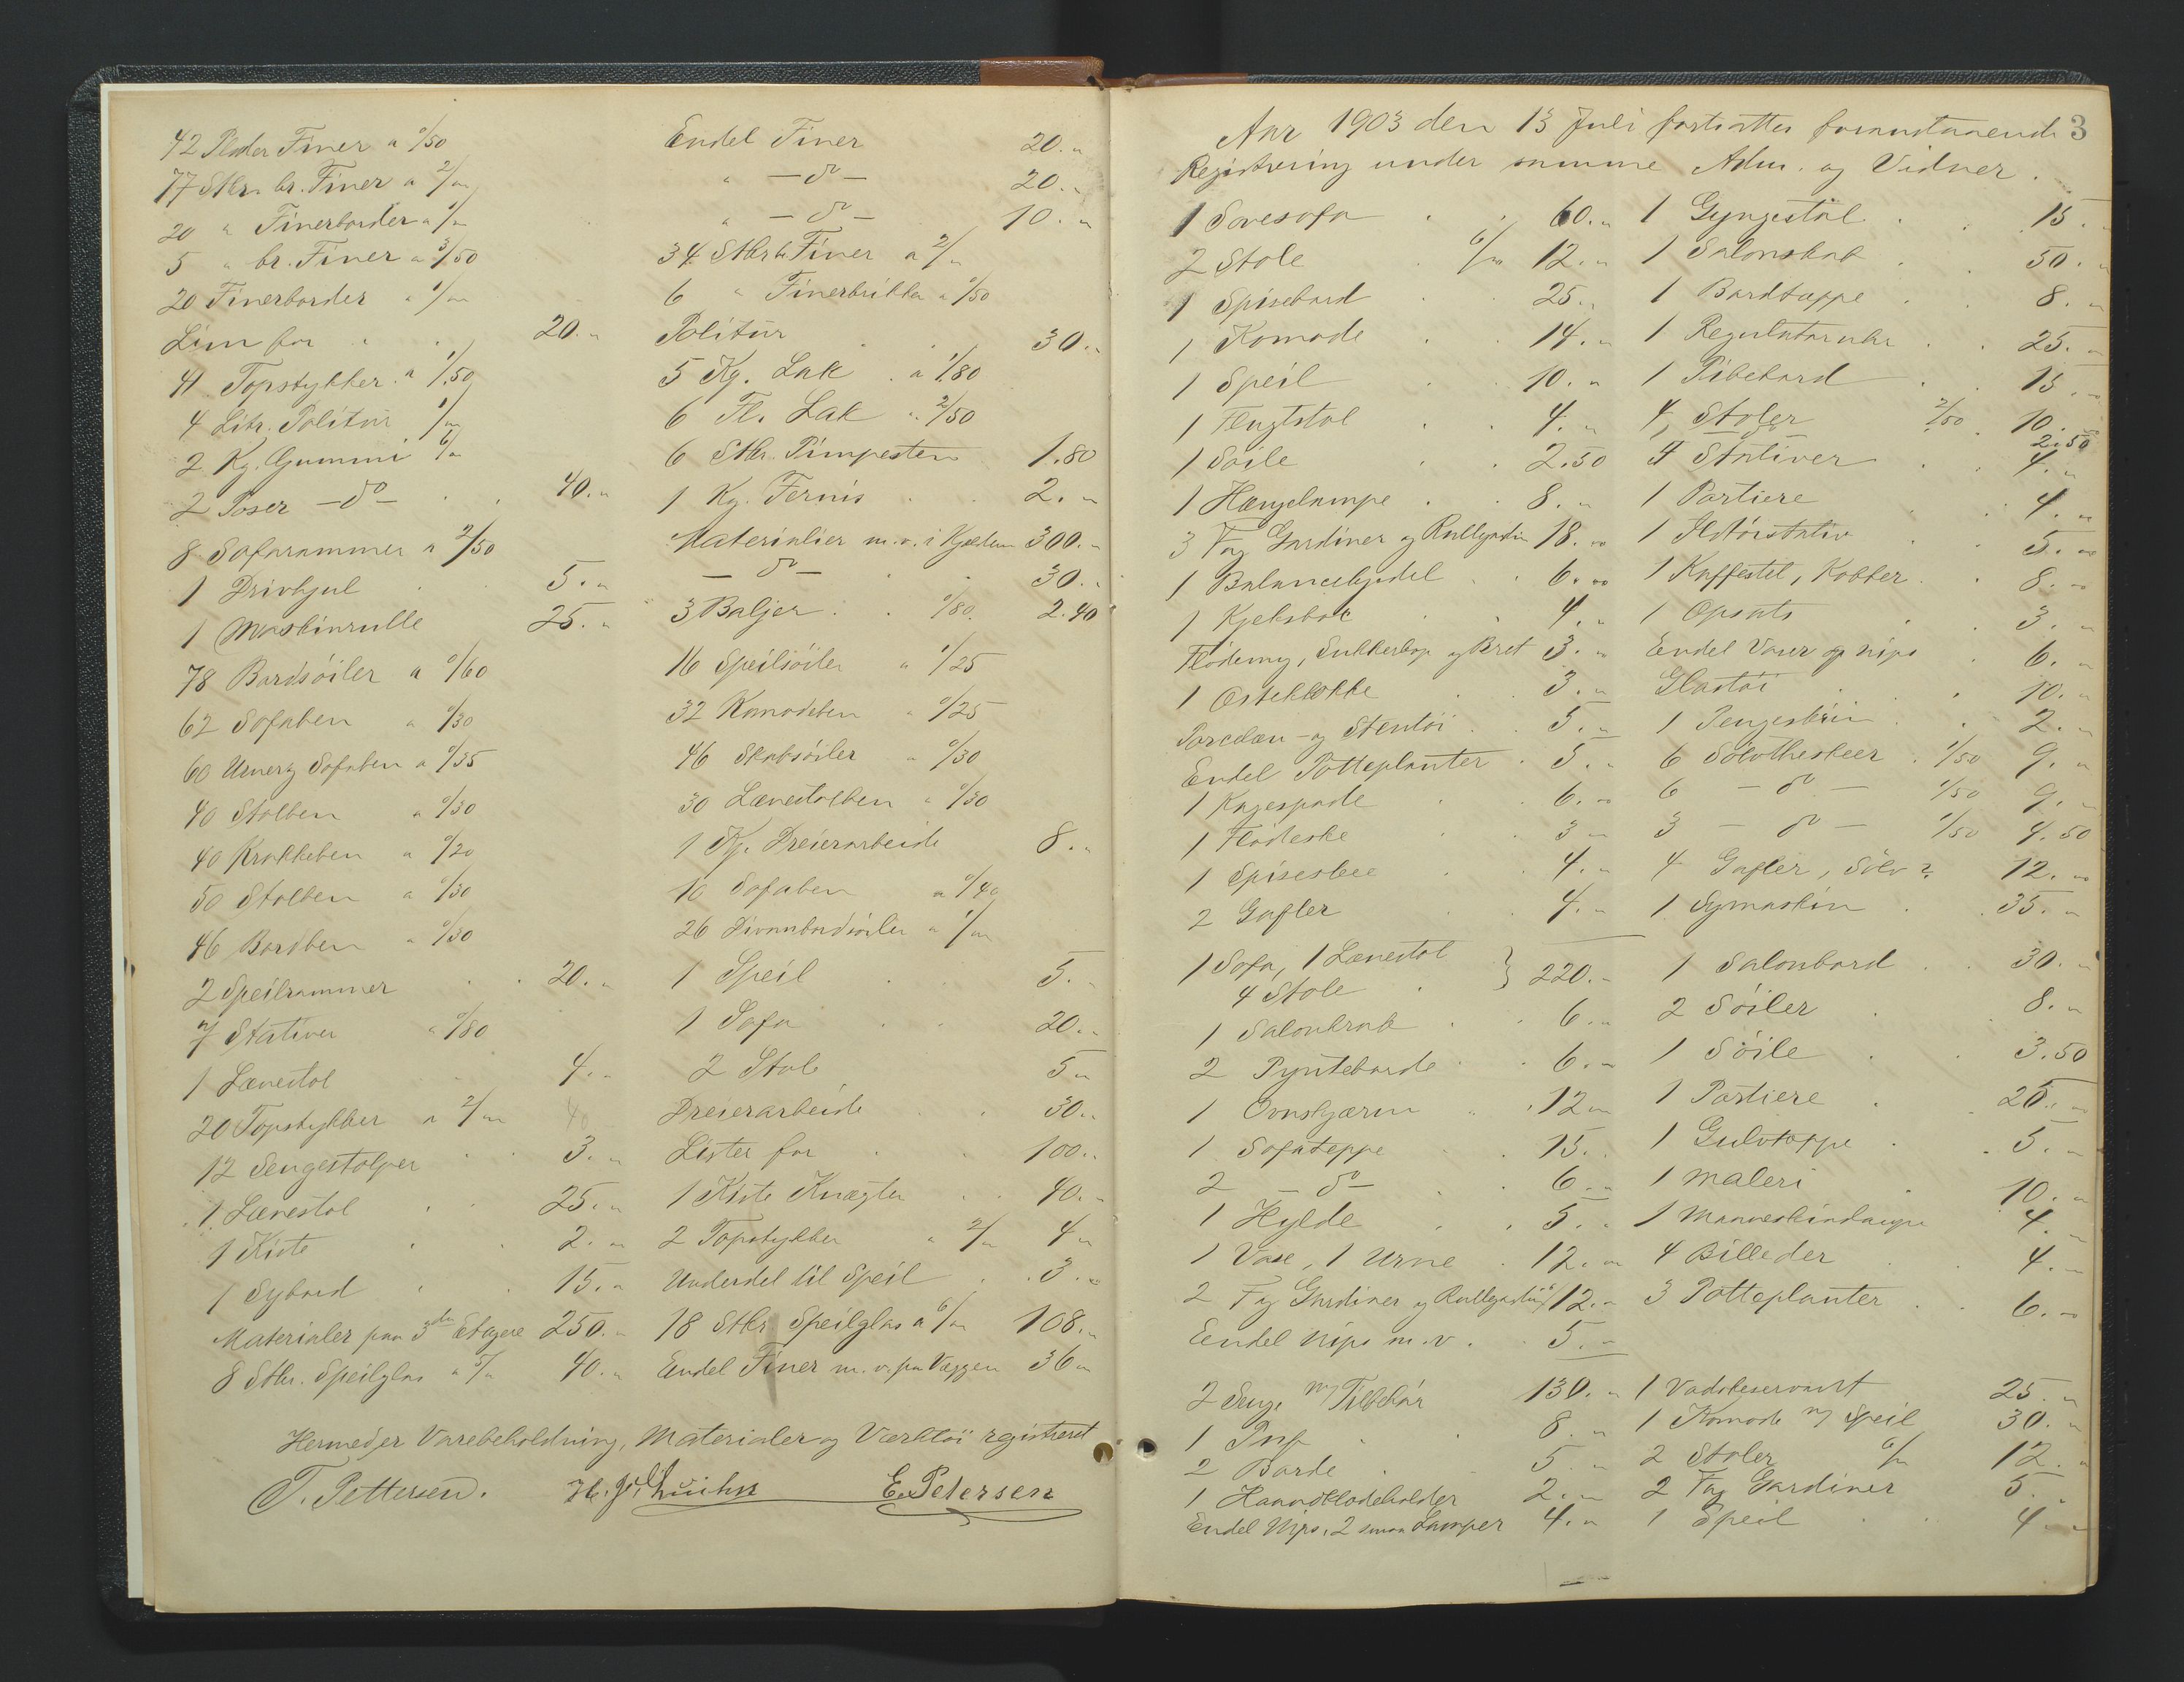 42 Plader Finer a 0/50
77 Stkr. br. Finer a 2/"
20 " Finerborder a 1/"
5 " br. Finer a 3/50
20 Finerborder " 1/"
Lim for 20."
41 Topstykker a 1/50
4 Litr. Politur 1/"
2 Kg. Gummi 6/"
2 Poser - do - 40."
8 Sofarammer a 2/50
1 Drivhjul 5."
1 Maskinrulle 25."
78 Bordsöiler a 0/60
62 Sofaben a 0/30
60 Urner og Sofaben a 0/35
40 Stolben a 0/30
40 Krakkeben a 0/20
50 Stolben a 0/30
46 Bordben a 0/30
2 Speilrammer 20."
7 Stativer a 0/80
1 Lænestol 4."
20 Topstykker a 2/" 40
12 Sengestolper 3."
1 Lænestol 25."
1 Kiste 2."
1 Sybord 15."
Materialer paa 3die Etagere 250."
8 Stkr. Speilglas a 5/" 40."
Endel Finer 20."
" - do - 20."
" - do - 10."
34 Stkr br Finer a 2/"
6 " Finerbrikker a 0/50
Politur 30."
5 Kg. Lak a 1/80
6 Fl. Lak " 2/50
6 Stkr. Pimpesten 1.80
1 Kg. Fernis 2."
Materialier m.v. i Kjælderen 300."
- do - 30."
3 Baljer 0/80. 2.40
16 Speilsöiler a 1/25
32 Komodeben " 0/25
46 Skabsöiler a 0/30
30 Lænestolben a 0/30
1 Kg. Dreierarbeide 8."
10 Sofaben a 0/40
26 Divanbordsöiler a 1/"
1 Speil 5."
1 Sofa 20."
2 Stole 5"
Dreierarbeide 30."
Lister for 100."
1 Kiste Knægter 40."
2 Topstykker a 2/" 4"
Underdel til Speil 3."
18 Stkr. Speilglas a 6/" 108."
Endel Finer m.v. paa Væggen 36"
Hermed er Varebeholdning, Materialer og Værktöi registreret
T. Pettersen. E. Petersen
3
Aar 1903 den 13 Juli fortsattes foranstaaende
Registrering under samme Adm. og Vidner.
1 Sovesofa 60."
2 Stole 6/" 12."
1 Spisebord 25."
1 Komode 14."
1 Speil 10."
1 Flugtstol 4."
1 Söile 2.50
1 Hængelampe 8."
3 Fag Gardiner og Rullgardin 18."
1 Balancebjedel 6."
1 Kjeksboc 4."
Flödemug, Sukkerkop og Bret 3."
1 Osteklokke 3."
Porcelæn- og Stentöi 5."
Endel Potteplanter 5."
1 Kagespade 6."
1 Flödeske 3"
1 Spiseskee 4."
2 Gafler 4."
1 Sofa, 1 Lænestol
4 Stole } 220.-
1 Salonkrak 6."
2 Pynteborde 6."
1 Ovnskjærm 12"
1 Sofateppe 15.
2 - do - 6."
1 Hylde 5."
1 Vase, 1 Urne 12."
2 Fag Gardiner og Rullgardin 12."
Endel Nips m.v. 5."
2 Senge m/ Tilbehör 130."
1 Puf 8."
2 Borde 5."
1 Haandklædeholder 2."
Endel Nips, 2 smaa Lamper 4."
1 Gyngestol 15."
1 Salonskab 50."
1 Bordtæppe 8."
1 Regulatoruhr 25."
1 Pibebord 15."
4 Stoler 2/50 10."
2.50
4 Stativer 4."
1 Portiere 4."
1 Ildtöistativ 5."
1 Kaffestel, Kobber 8."
1 Opsats 3."
Endel Vaser og nips 6."
Glastöi 10."
1 Pengeskrin 2."
6 Sölvtheskeer 1/50 9."
6 - do - 1/50 9."
3 - do - 1/50 4.50
4 Gafler, Sölv? 12."
1 Symaskin 35."
1 Salonbord 30."
2 Söiler 8."
1 Söile 3.50
1 Portiere 20."
1 Gulvtæppe 5."
1 Maleri 10."
4."
4 Billeder 4."
3 Potteplanter 6."
1 Vadskeservant 25."
1 Komode m/ Speil 30."
2 Stoler 6/" 12."
2 Fag Gardiner 5."
1 Speil 4"